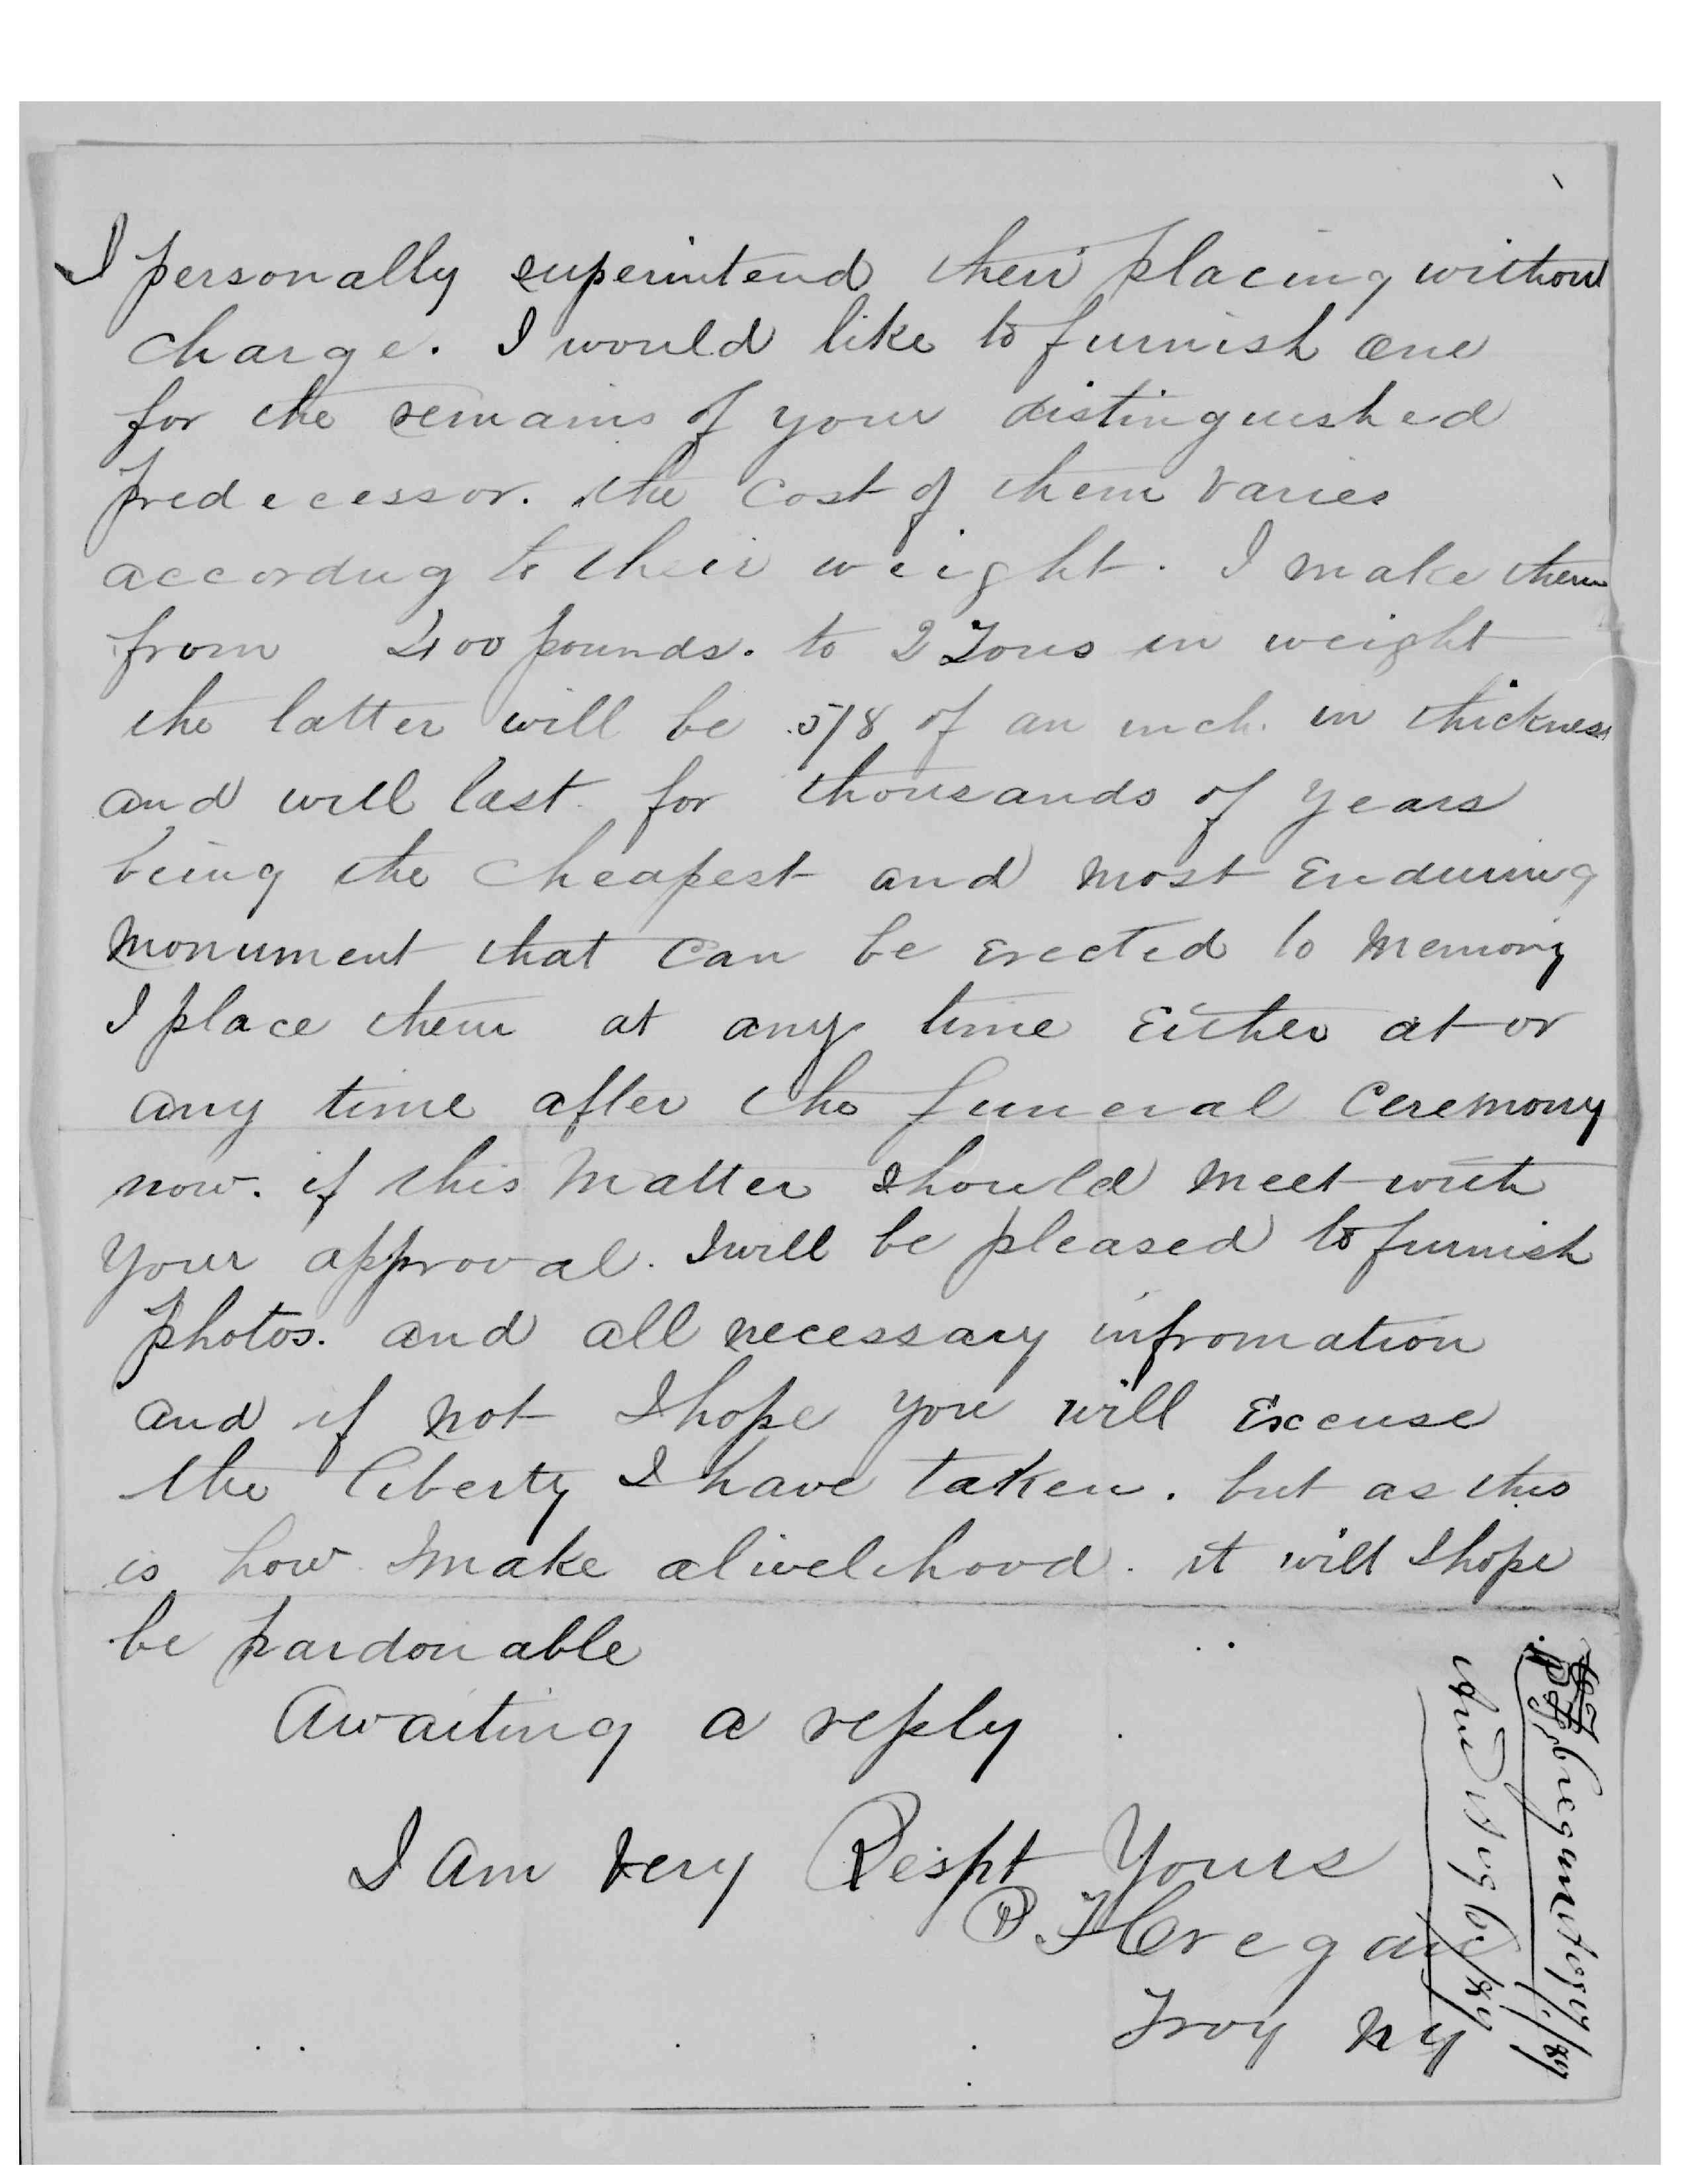 I personally superintend their placing without
charge. I would like to furnish one
for the remains of your distinguished
predecessor. the cost of them varies
accordug to their weight. I make them
from 400 pounds. to 2 Tons in weight
the latter will be 5/8 of an inch. in thickness
and will last for thousands of years
being the cheapest and most Enduring
Monument that can be erected to Memory
I place them at any time Either at or
any time after the funeral Ceremony
now. if this Matter should Meet with
your approval. I will be pleased to furnish
photos. and all necessary infromation
and if not I hope you will Excuse
the liberty I have taken. but as this
is how I make alivelehood. it will I hope
be pardonable
Awaiting a reply
I Am Very Respt Yours
P F Cregan
Troy NY